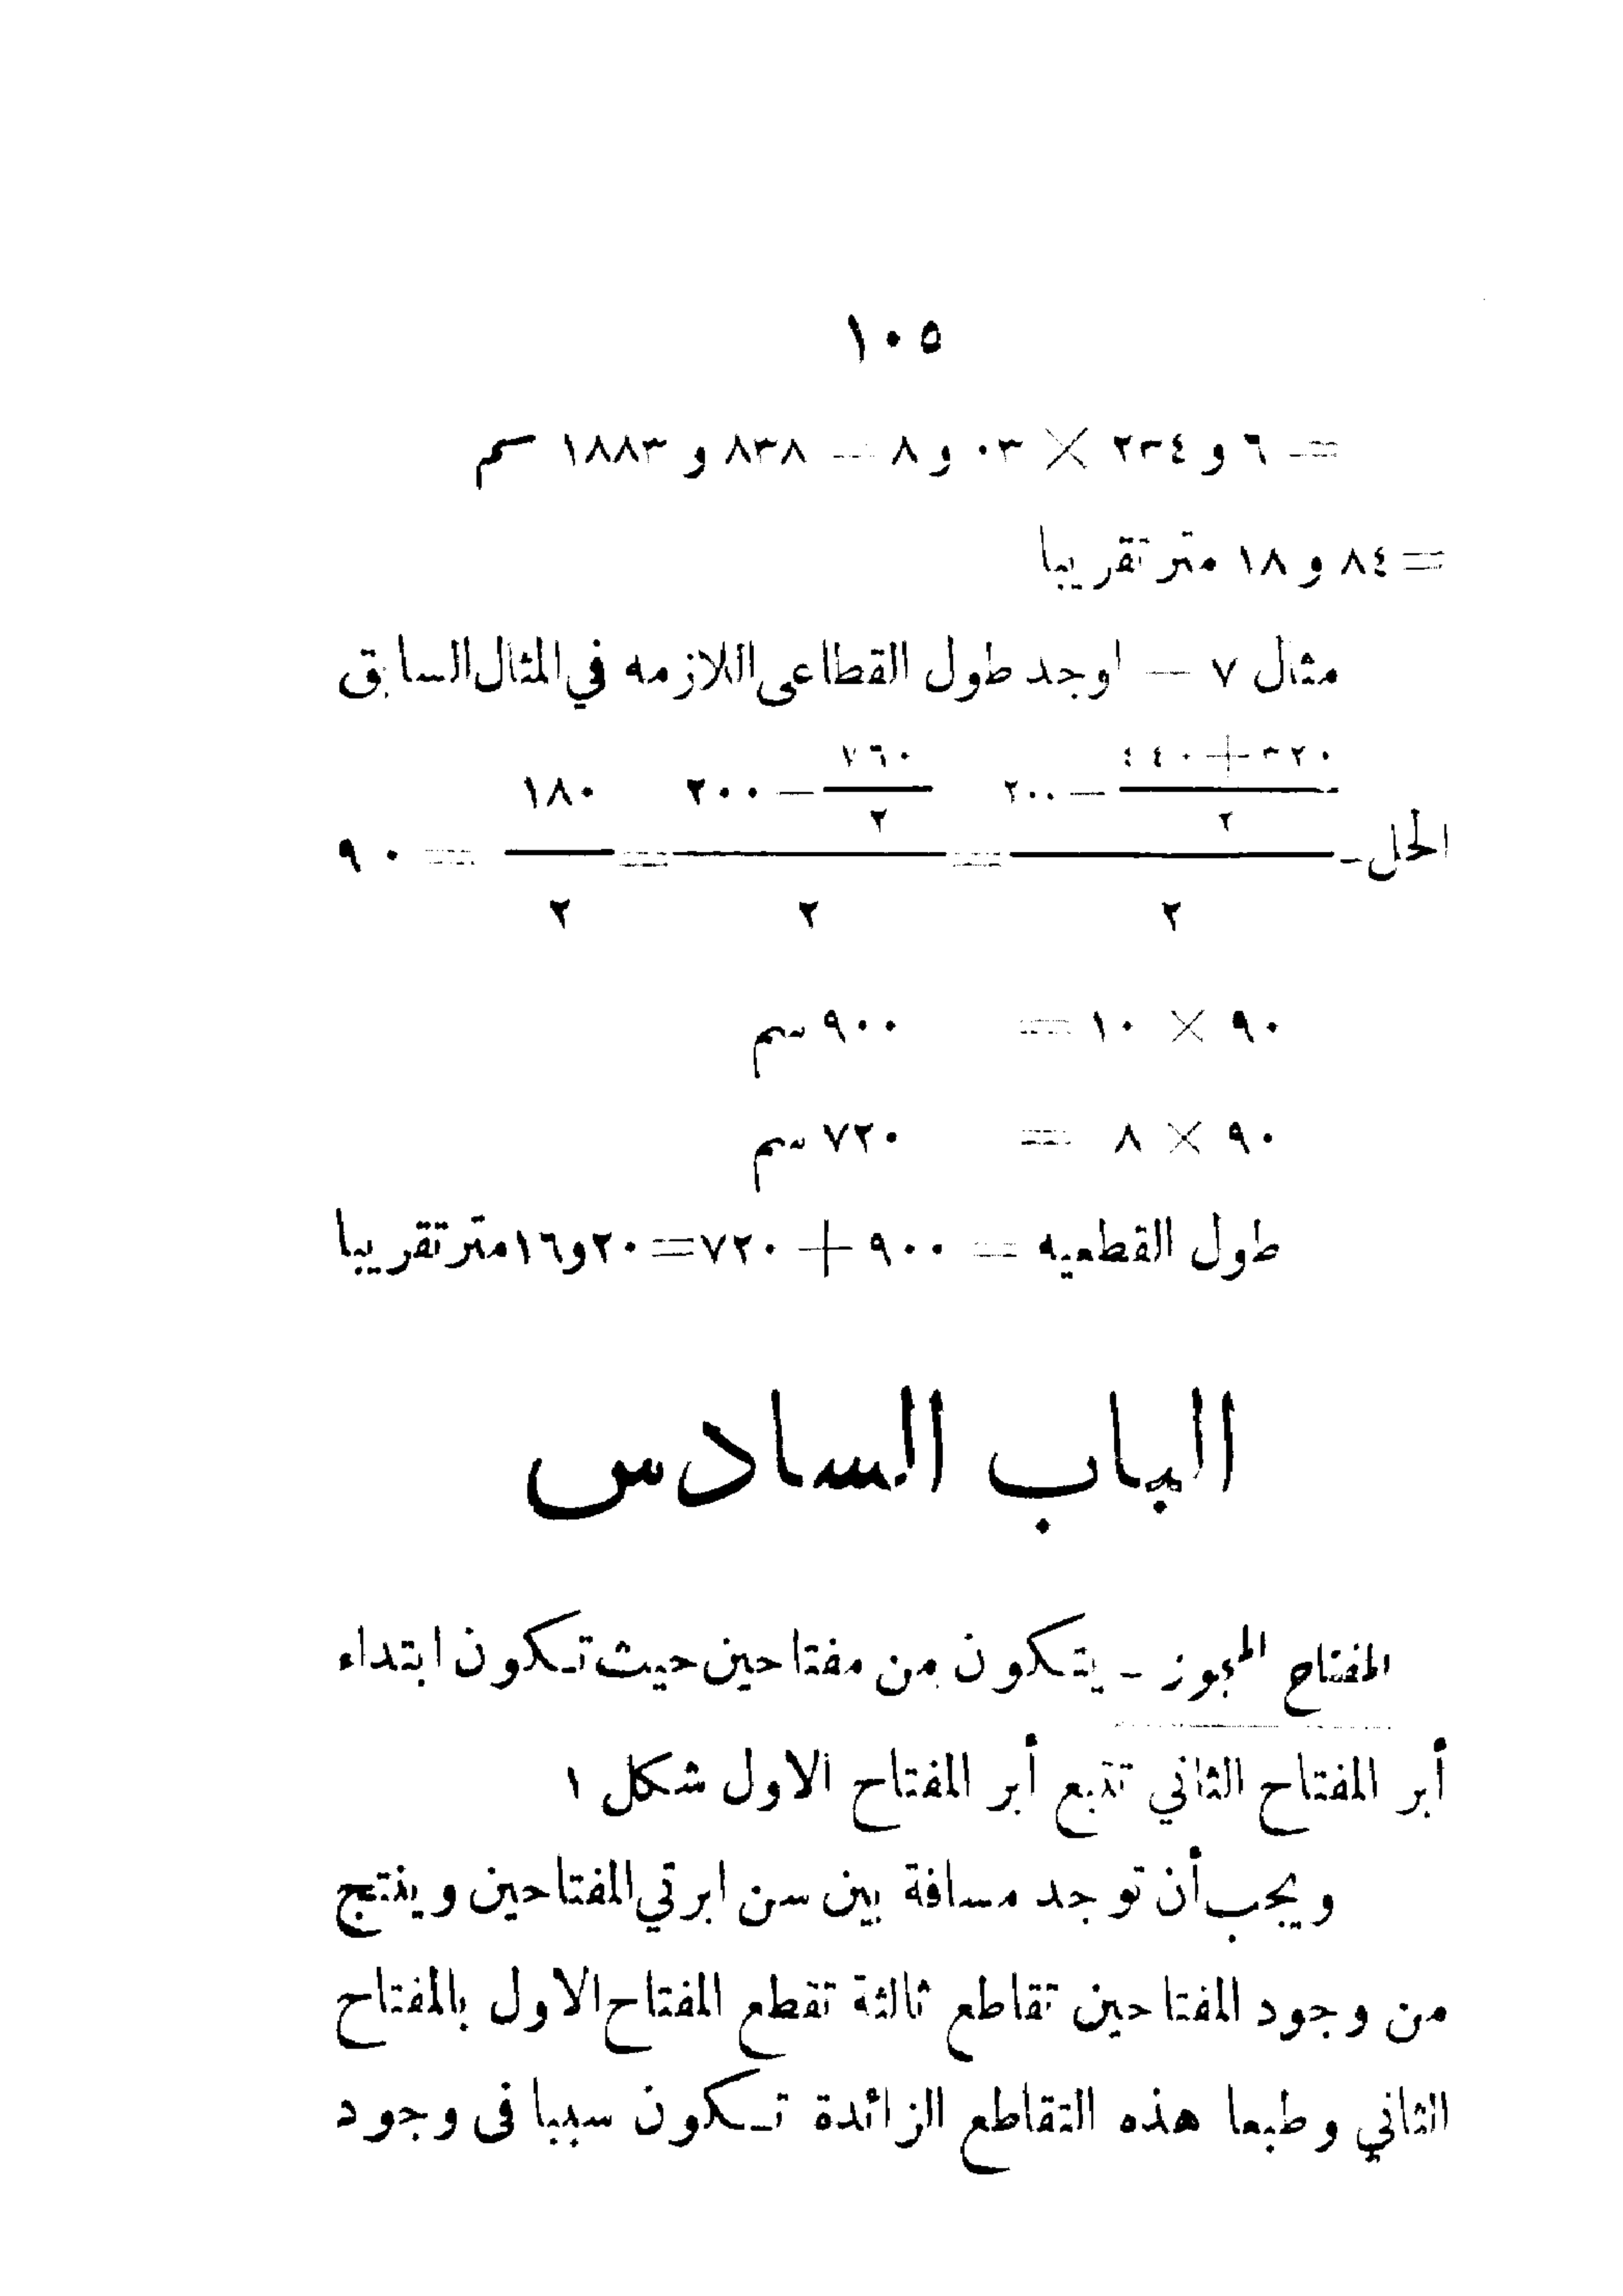 ١٠٥
= ٦ و ٢٣٤ × ٠٣ و ٨ = ٨٣٨ و ١٨٨٣ سم
= ٨٤ و ١٨ متر تقريبا
مثال ٧ — اوجد طول القطاعى اللازمه في المثال السابق
الحل - ((٣٢٠ + ٤٤٠)/٢ — ٢٠٠)/٢ = (٧٦٠/٢ — ٢٠٠)/٢ = ١٨٠/٢ = ٩٠
٩٠ × ١٠ = ٩٠٠ سم
٩٠ × ٨ = ٧٢٠ سم
طول القطعيه = ٩٠٠ + ٧٢٠ = ٢٠ و ١٦ متر تقريبا
الباب السادس
المفتاح المجوز - يتكون من مفتاحين حيث تكون ابتداء
أبر المفتاح الثاني تتبع أبر المفتاح الاول شكل ١
ويجب أن توجد مسافة بين سن ابرتي المفتاحين وينتج
من وجود المفتاحين تقاطع ثالثة تقطع المفتاح الاول بالمفتاح
الثاني وطبعا هذه التقاطع الزائدة تكون سببا فى وجود